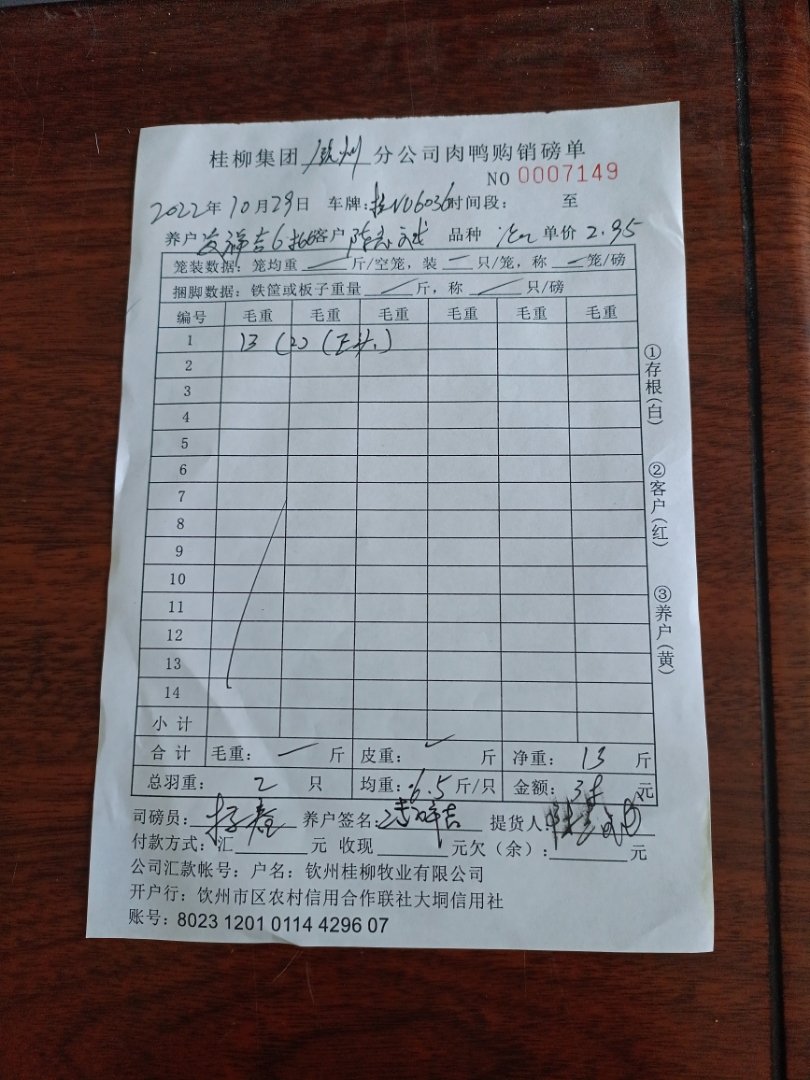 桂柳集团 钦州 分公司肉鸭购销磅单
NO 0007149
2022年10月29日 车牌:桂N06036时间段: 至
养户 客户 品种 单价 2.95
笼装数据:笼均重 斤/空笼,装 只/笼,称 笼/磅
捆脚数据:铁筐或板子重量 斤,称 只/磅
编号 毛重 毛重 毛重 毛重 毛重 毛重
1 13 (2)
2
3
4
5
6
7
8
9
10
11
12
13
14
小计
合计 毛重: 斤 皮重: 斤 净重: 13 斤
总羽重: 2 只 均重:6.5斤/只 金额: 元
司磅员: 养户签名: 提货人:
付款方式:汇 元 收现 元欠(余): 元
公司汇款帐号:户名:钦州桂柳牧业有限公司
开户行:钦州市区农村信用合作联社大垌信用社
账号:8023 1201 0114 4296 07
①存根(白)
②客户(红)
③养户(黄)